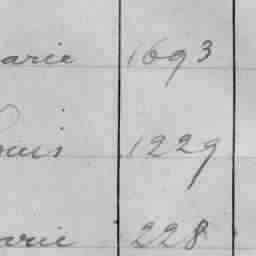 arie 1693
ouis 1229
arie 228